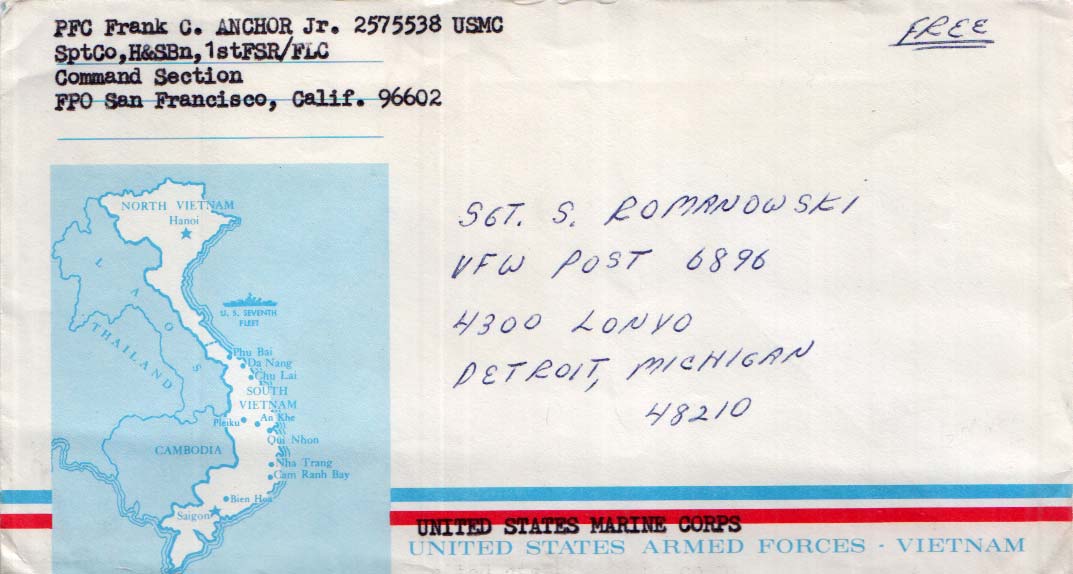 PFC Frank C. ANCHOR Jr. 2575538 USMC
SptCo,H&SBn,1stFSR/FLC
Command Section
FPO San Francisco, Calif. 96602
FREE
SGT. S. ROMANOWSKI
VFW POST 6896
4300 LONYO
DETROIT, MICHIGAN
48210
NORTH VIETNAM
Hanoi
LAOS
THAILAND
U. S. SEVENTH
FLEET
Phu Bai
Da Nang
Chu Lai
SOUTH
VIETNAM
Pleiku
An Khe
Qui Nhon
CAMBODIA
Nha Trang
Cam Ranh Bay
Bien Hoa
Saigon
UNITED STATES MARINE CORPS
UNITED STATES ARMED FORCES · VIETNAM